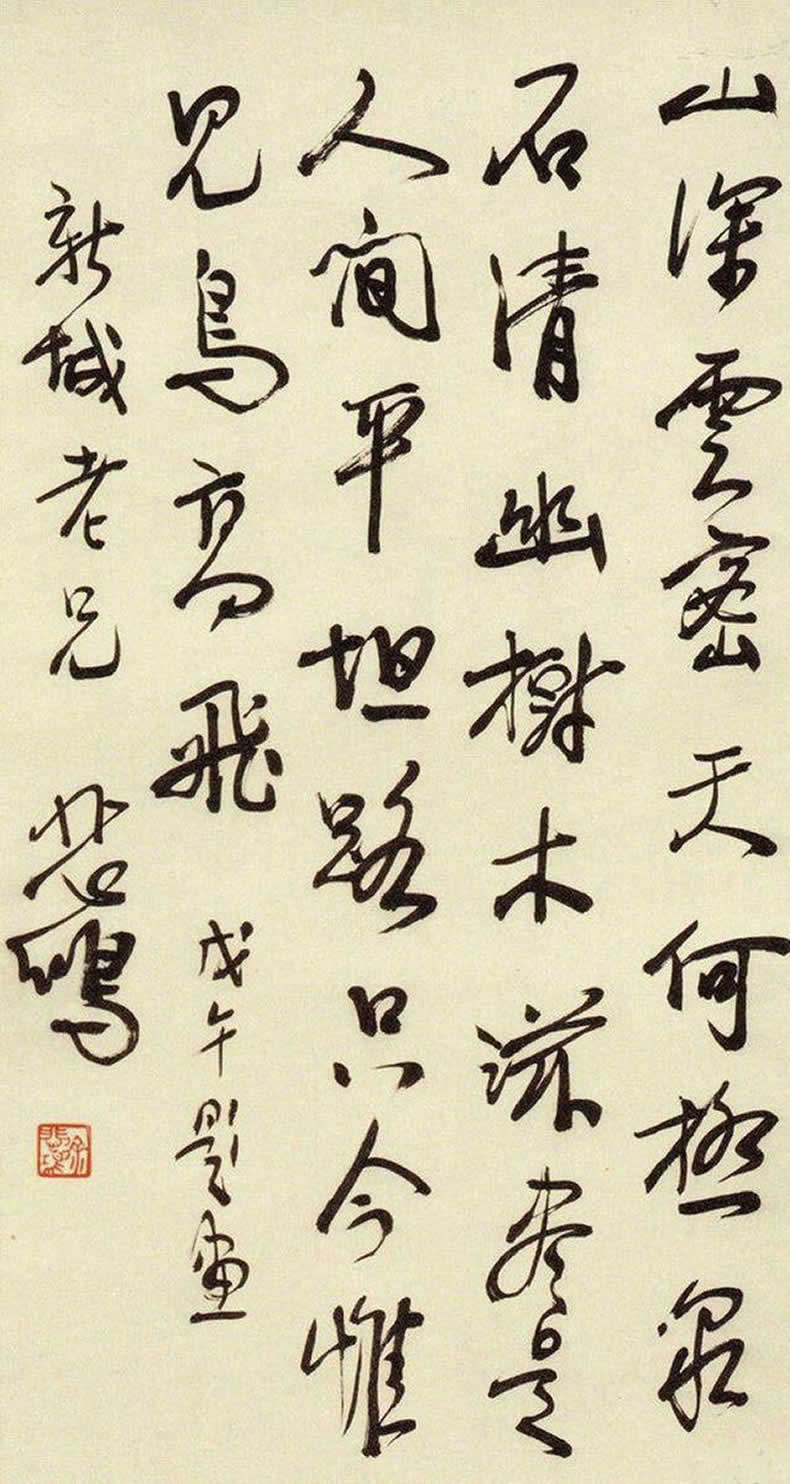 山深雲密天何極泉
石清幽樹木滋盡是
人間平坦路只今惟
見鳥高飛 戊午題畫
新城老兄 悲鴻
徐悲鴻